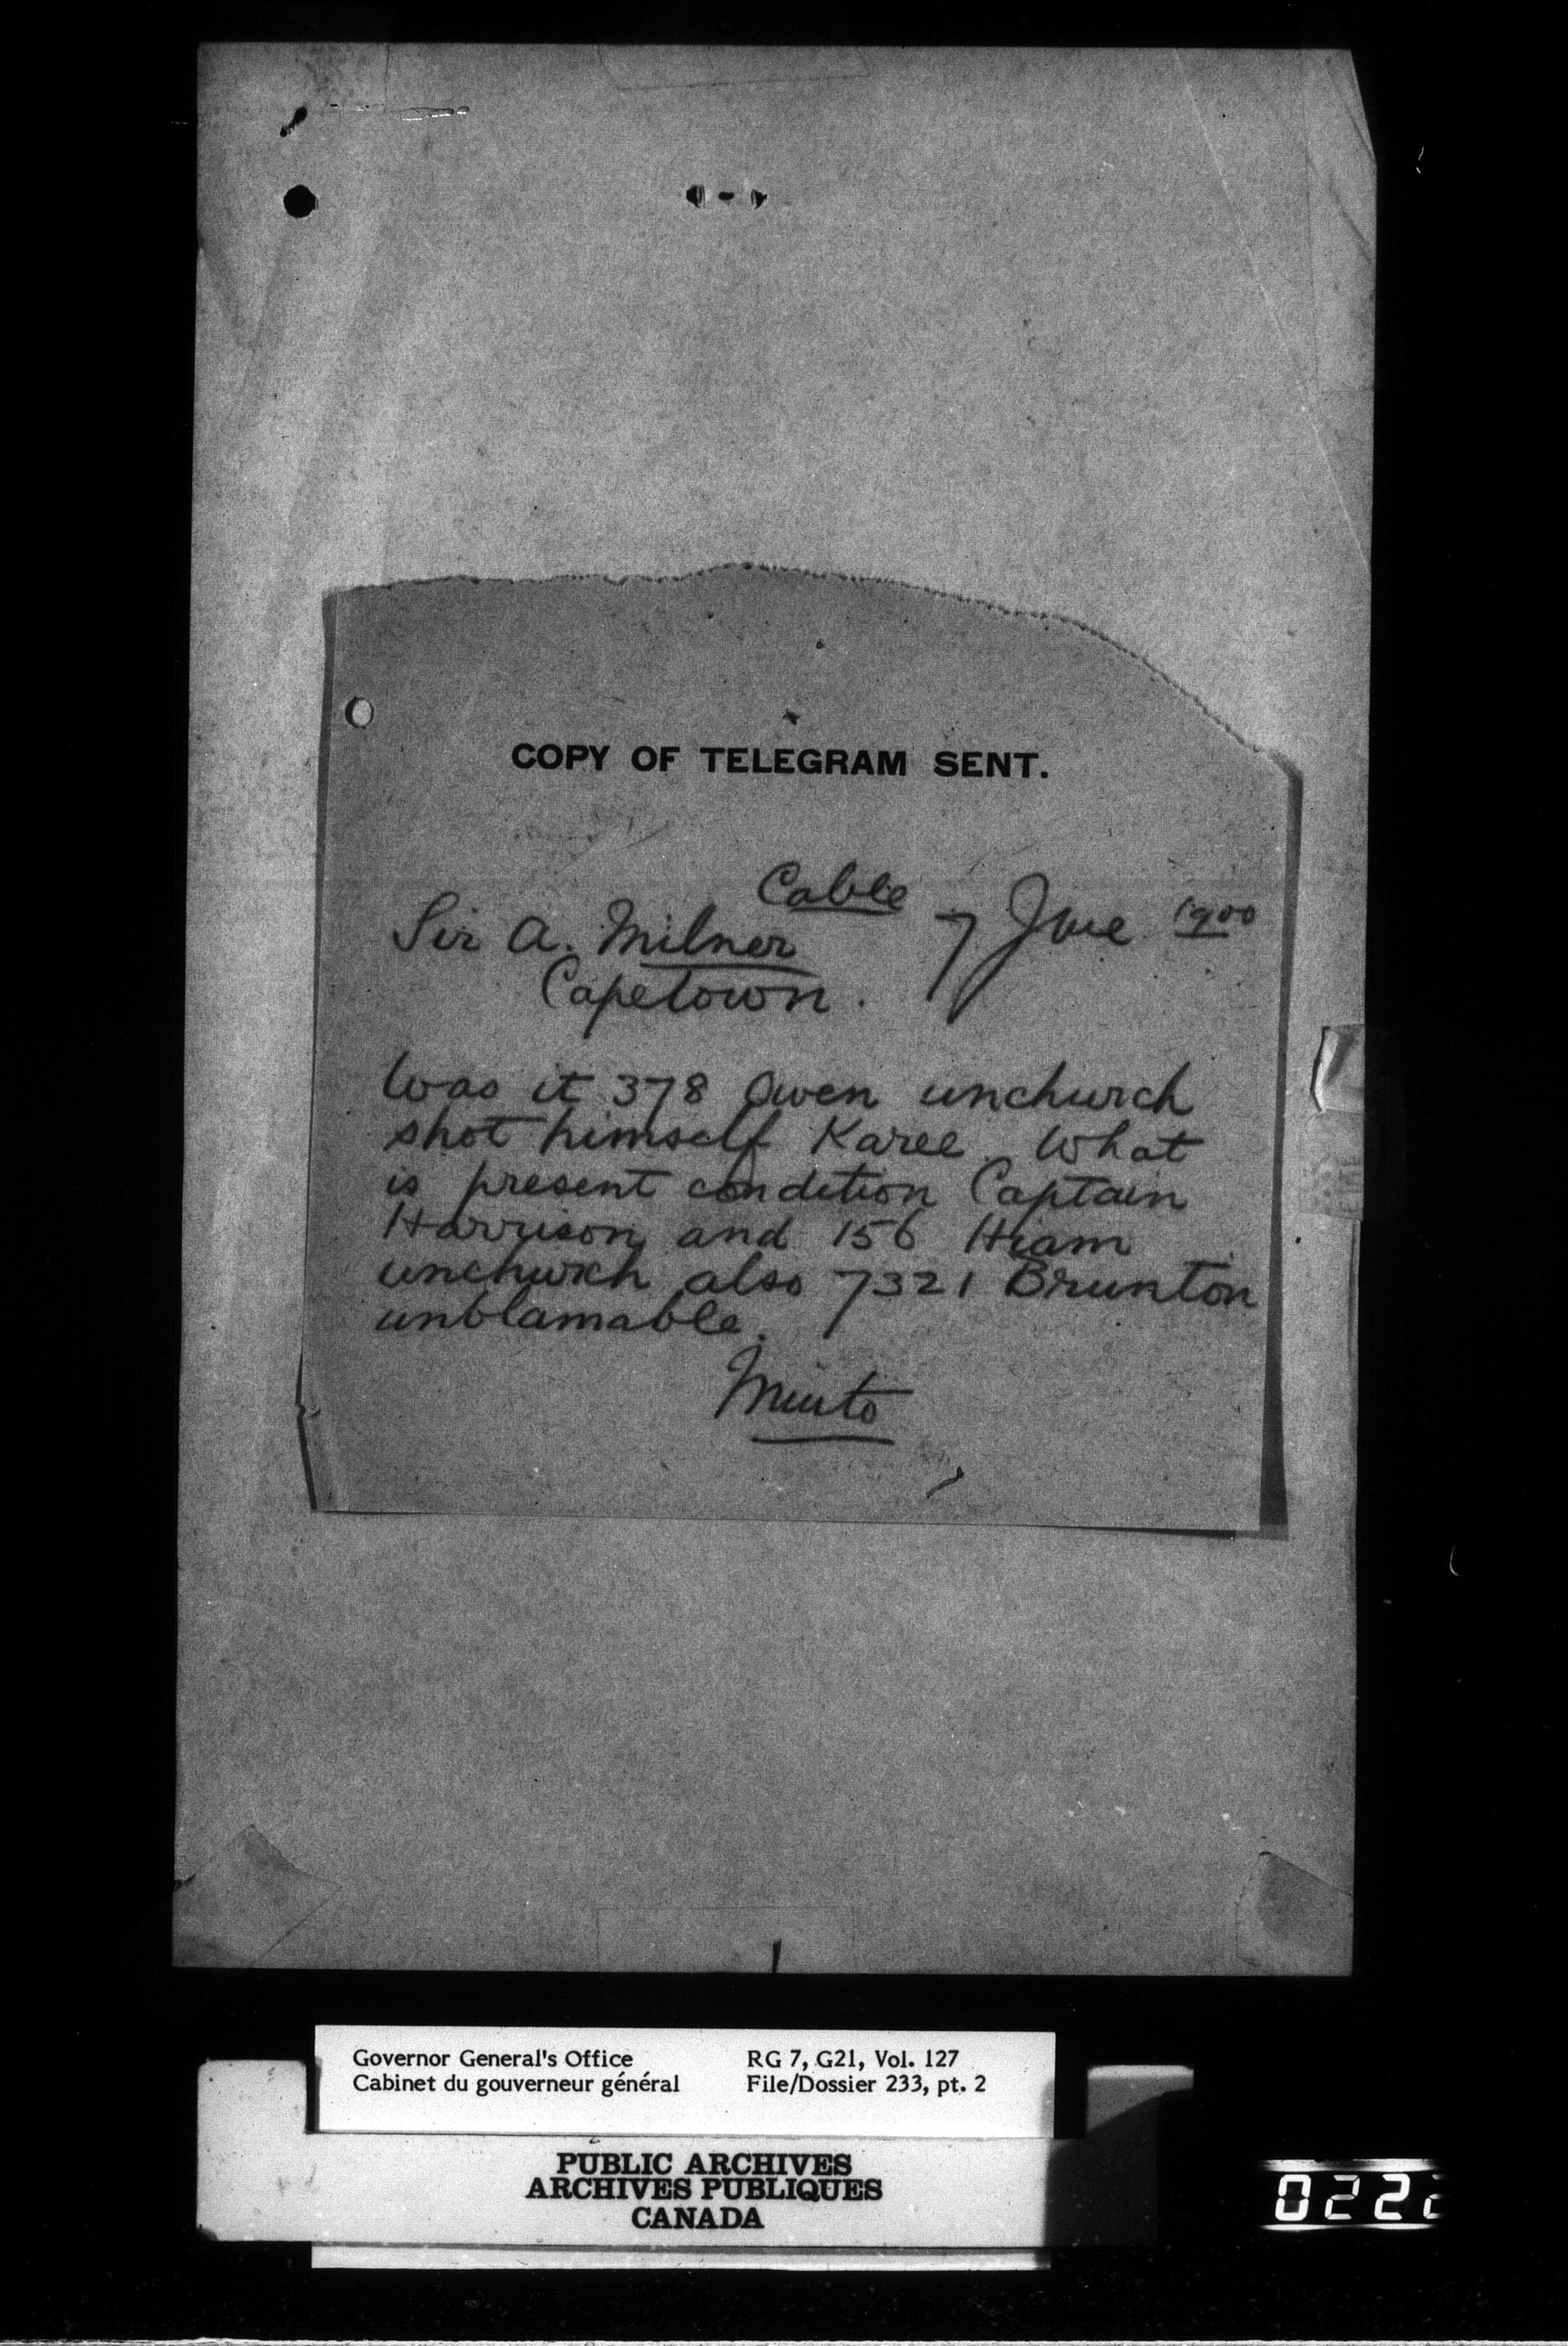 COPY OF TELEGRAM SENT.
Cable
7 June 1900
Sir A. Milner
Capetown.
Was it 378 Owen unchurch
shot himself Karee. What
is present condition Captain
Harrison and 156 Hiam
unchurch also 7321 Brunton
unblamable.
Minto
Governor General's Office
Cabinet du gouverneur général
RG 7, G21, Vol. 127
File/Dossier 233, pt. 2
PUBLIC ARCHIVES
ARCHIVES PUBLIQUES
CANADA
0222